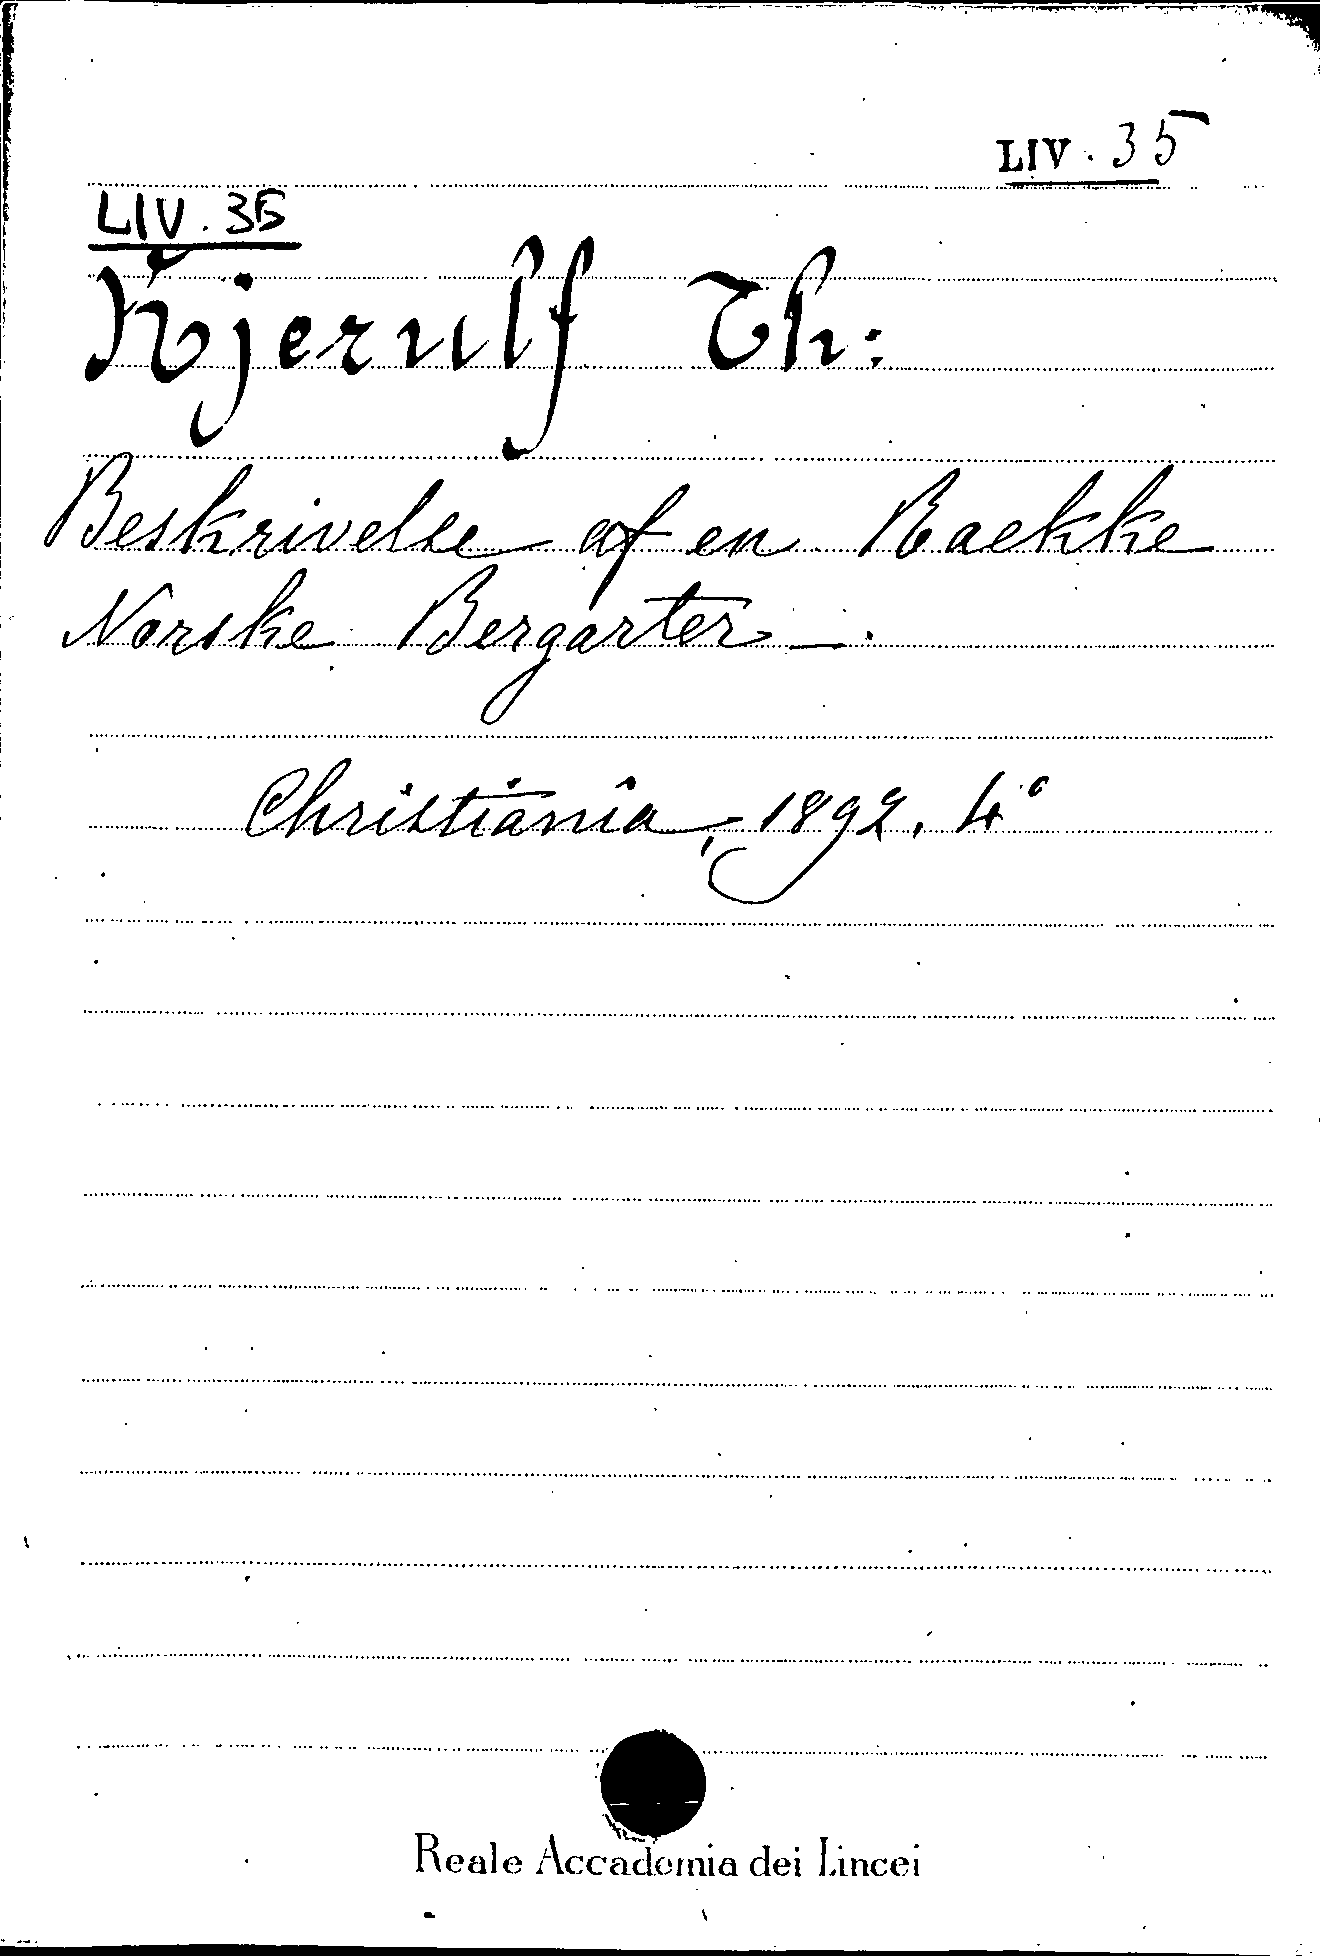 LIV. 35
LIV. 35
Kjerulf Th:
Beskrivelse af en Raekke
Norske Bergarter —.
Christiania, 1892. 4°
Reale Accademia dei Lincei